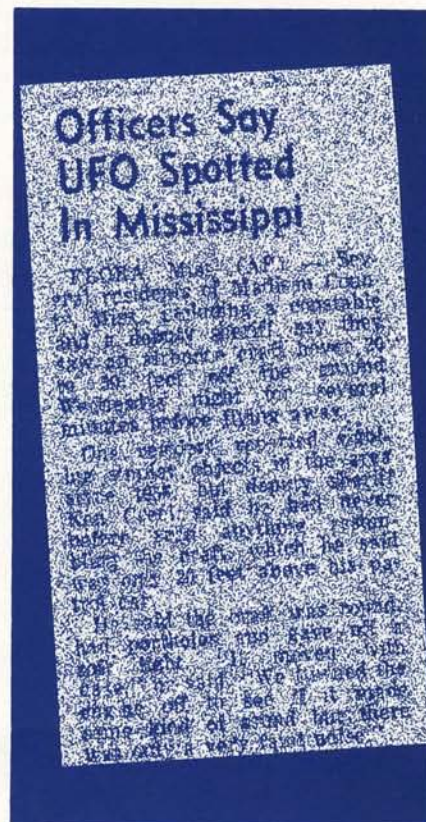 Officers Say
UFO Spotted
In Mississippi
FLORA Miss. (AP) — Sev-
eral residents of Madison Coun-
ty Miss. including a constable
and a deputy sheriff say they
saw an airborne craft hover 20
to 30 feet off the ground
Wednesday night for several
minutes before flying away.
One person reported sight-
ing similar objects in the area
since but deputy sheriff
Ken Creel said he had never
before seen anything resem-
bling the craft, which he said
was only 20 feet above his pa-
trol car.
He said the craft was round,
had portholes and gave off a
light. "It moved with
he said. "We turned the
engine off to see if it made
some kind of sound but there
was only a very faint noise."